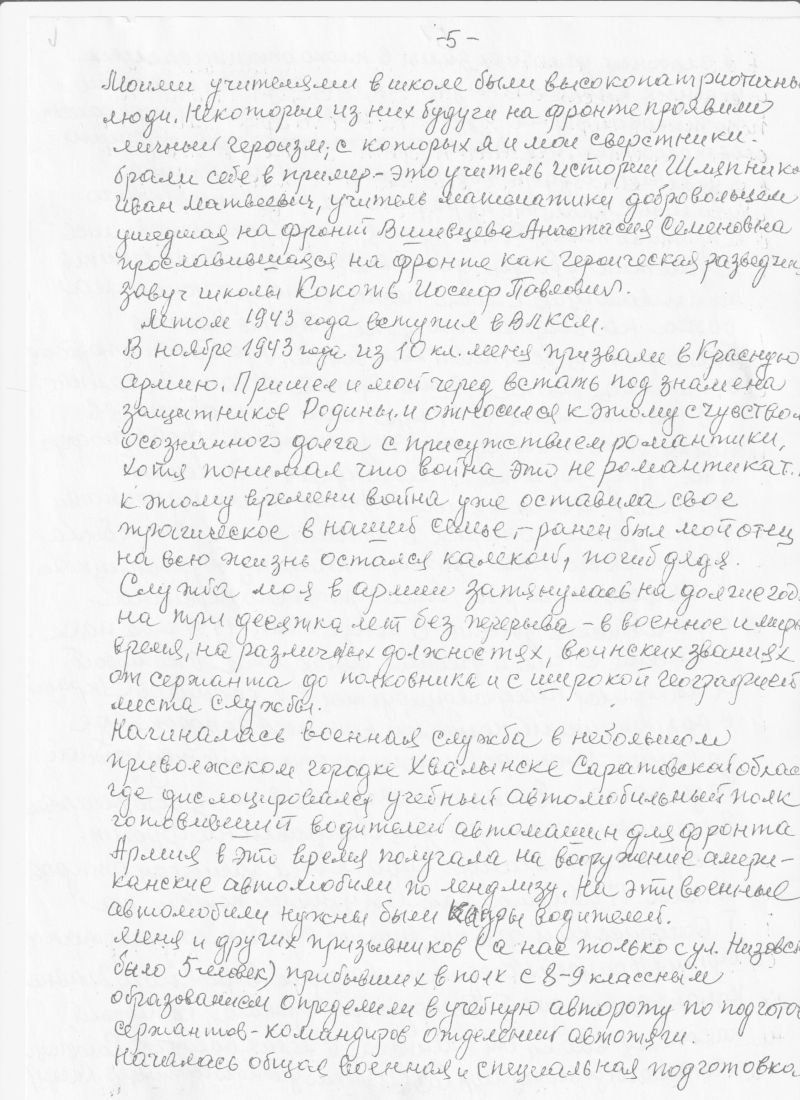 -5-
Моими учителями в школе были высокопатриотичны
люди. Некоторые из них будучи на фронте проявили
личный героизм, с которых я и мои сверстники
брали себе в пример - это учитель истории Шляпнико
Иван Матвеевич, учитель математики добровольцем
ушедшая на фронт Вишевцева Анастасия Семеновна
прославившаяся на фронте как героическая разведчиц
завуч школы Кокоть Иосиф Павлович.
Летом 1943 года вступил в ВЛКСМ.
В ноябре 1943 года из 10 кл. меня призвали в Красную
армию. Пришел и мой черед встать под знамена
защитников Родины и относился к этому с чувством
осознанного долга с присутствием романтики,
хотя понимал что война это не романтика т..
к этому времени война уже оставила свое
трагическое в нашей семье, - ранен был мой отец
на всю жизнь остался калекой, погиб дядя.
Служба моя в армии затянулась на долгие год
на три десятка лет без перерыва - в военное и мирн
время, на различных должностях, воинских званиях
от сержанта до полковника и с широкой географией
места службы.
Начиналась военная служба в небольшом
приволжском городке Хвалынске Саратовской облас
где дислоцировался учебный автомобильный полк
готовивший водителей автомашин для фронта
Армия в это время получала на вооружение амери-
канские автомобили по лендлизу. На эти военные
автомобили нужны были кадры водителей.
Меня и других призывников (а нас только с ул. Низовск
было 5 человек) прибывших в полк с 8-9 классным
образованием определили в учебную автороту по подгото
сержантов-командиров отделений автотяги.
Началась общая военная и специальная подготовка